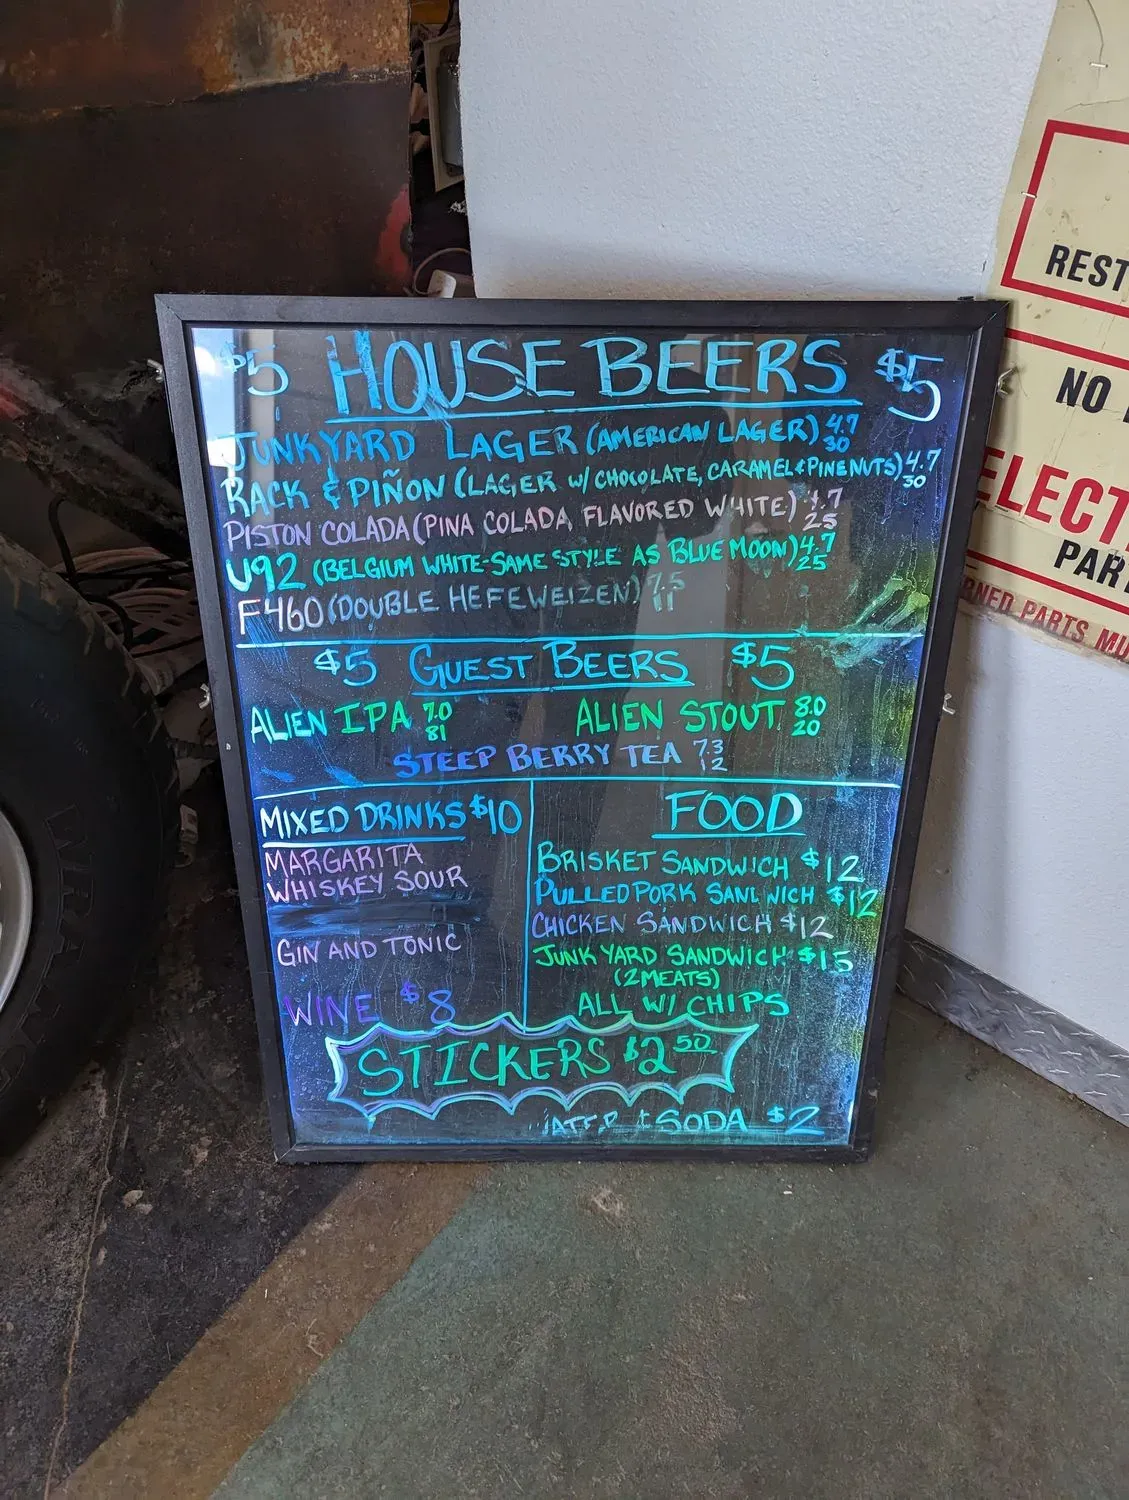 $5 HOUSE BEERS $5
JUNKYARD LAGER (AMERICAN LAGER) 4.7 30
RACK & PIÑON (LAGER W/ CHOCOLATE, CARAMEL & PINENUTS) 4.7 30
PISTON COLADA (PINA COLADA FLAVORED WHITE) 4.7 25
U92 (BELGIUM WHITE-SAME STYLE AS BLUE MOON) 4.7 25
F460 (DOUBLE HEFEWEIZEN) 7.5 11
$5 GUEST BEERS $5
ALIEN IPA 7.0 81 ALIEN STOUT 8.0 20
STEEP BERRY TEA 7.3 12
MIXED DRINKS $10
MARGARITA
WHISKEY SOUR
GIN AND TONIC
WINE $8
FOOD
BRISKET SANDWICH $12
PULLED PORK SANDWICH $12
CHICKEN SANDWICH $12
JUNK YARD SANDWICH $15
(2 MEATS)
ALL W/ CHIPS
STICKERS $2.50
WATER & SODA $2
REST
NO
ELECT
PAR
RNED PARTS MU